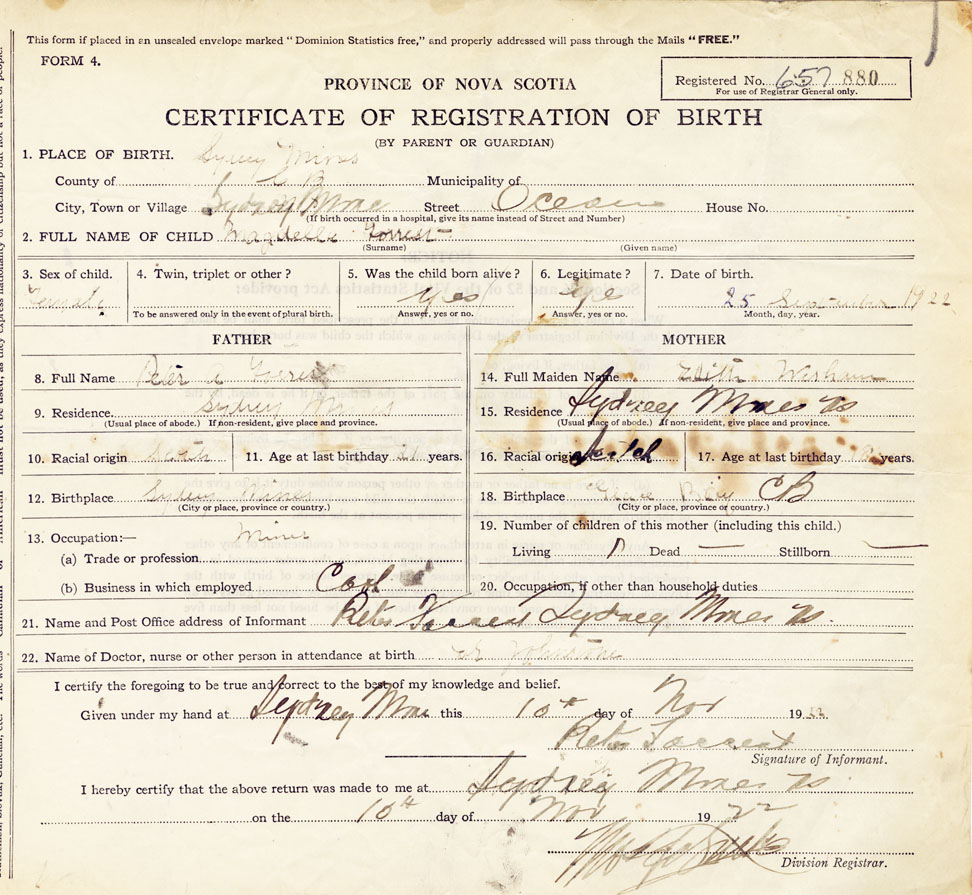 This form if placed in an unsealed envelope marked "Dominion Statistics free," and properly addressed will pass through the Mails "FREE."
FORM 4.
Registered No. 657 880
For use of Registrar General only.
PROVINCE OF NOVA SCOTIA
CERTIFICATE OF REGISTRATION OF BIRTH
(BY PARENT OR GUARDIAN)
1. PLACE OF BIRTH. Sydney Mines
County of C B Municipality of
City, Town or Village Sydney Mine Street Ocean House No.
(If birth occurred in a hospital, give its name instead of Street and Number)
2. FULL NAME OF CHILD Forrest
(Surname) (Given name)
3. Sex of child. 4. Twin, triplet or other? 5. Was the child born alive? 6. Legitimate? 7. Date of birth.
Female yes 25 September 1922
To be answered only in the event of plural birth. Answer, yes or no. Answer, yes or no. Month, day, year.
FATHER MOTHER
8. Full Name Peter Forrest 14. Full Maiden Name Edith
9. Residence. Sydney Mines 15. Residence Sydney Mines NS
(Usual place of abode.) If non-resident, give place and province. (Usual place of abode.) If non-resident, give place and province.
10. Racial origin 11. Age at last birthday years. 16. Racial origin Scotch 17. Age at last birthday years.
12. Birthplace Sydney Mines 18. Birthplace Glace Bay CB
(City or place, province or country.) (City or place, province or country.)
13. Occupation:— Miner 19. Number of children of this mother (including this child.)
(a) Trade or profession Living Dead — Stillborn —
(b) Business in which employed Coal 20. Occupation, if other than household duties
21. Name and Post Office address of Informant Peter Forrest Sydney Mines NS.
22. Name of Doctor, nurse or other person in attendance at birth Dr Johnstone
I certify the foregoing to be true and correct to the best of my knowledge and belief.
Given under my hand at Sydney Mine this 10th day of Nov 1922
Peter Forrest
Signature of Informant.
I hereby certify that the above return was made to me at Sydney Mines NS
on the 10th day of Nov 1922
Division Registrar.